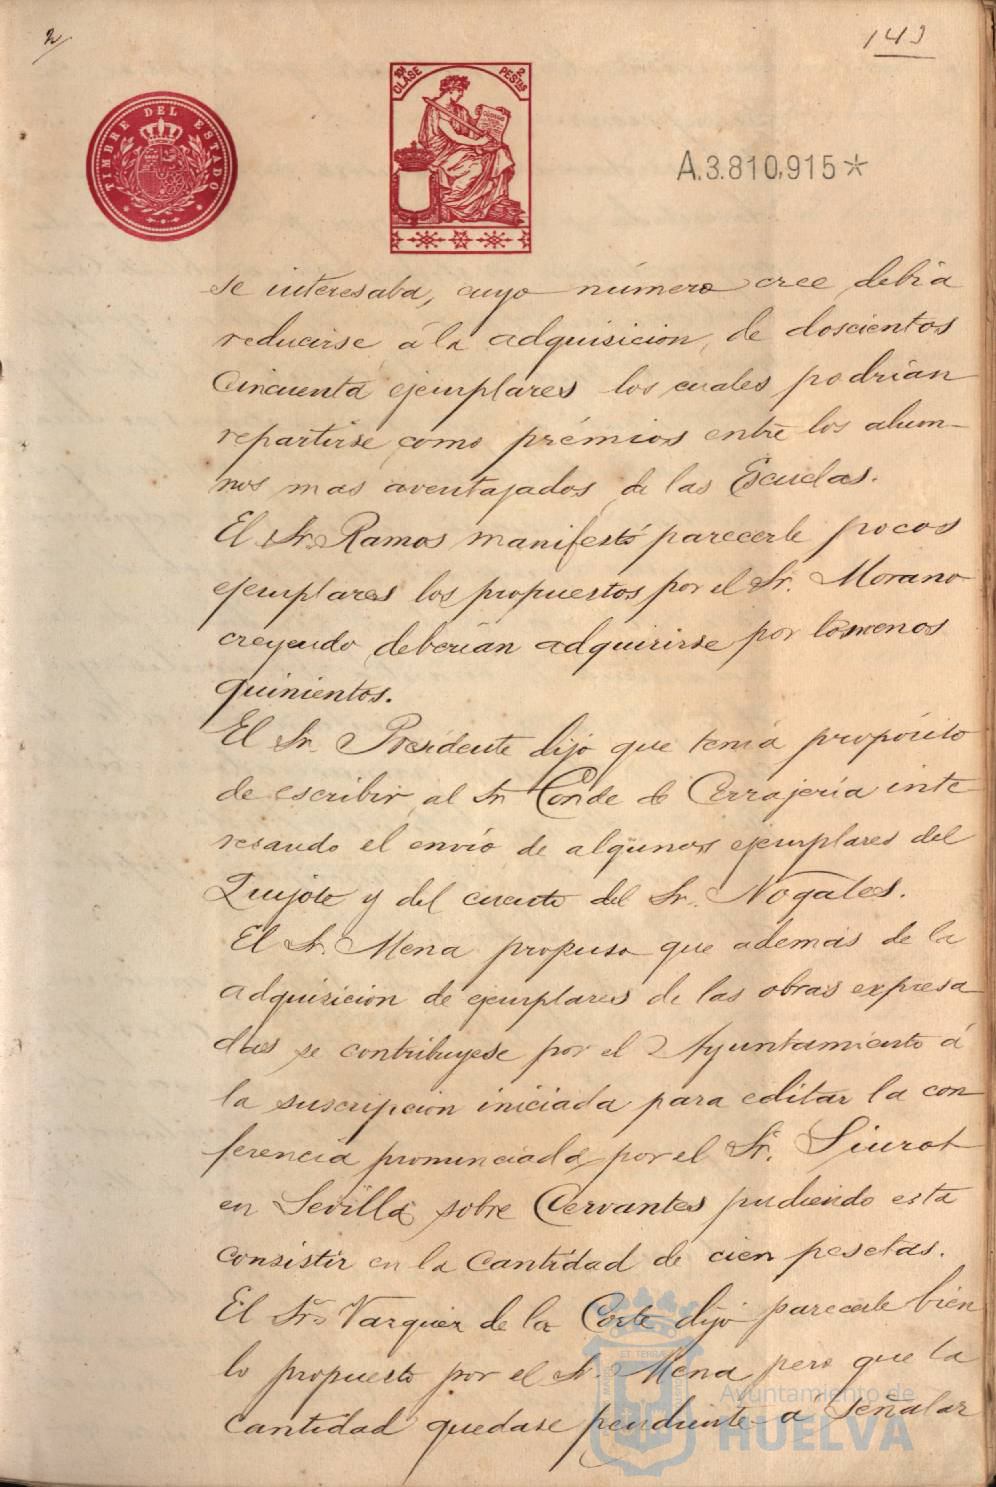 2/
143
TIMBRE DEL ESTADO
10ª CLASE
2 PESTAS
A.3.810,915*
se interesaba, cuyo número cree debia
reducirse á la adquisicion de doscientos
cincuenta ejemplares los cuales podrían
repartirse como prémios entre los alum-
nos mas aventajados de las Escuelas.
El Sr. Ramos manifestó parecerle pocos
ejemplares los propuestos por el Sr. Morano
creyendo deberian adquirirse por lo menos
quinientos.
El Sr. Presidente dijo que tenia propósito
de escribir al Sr Conde de Cerrajería inte
resando el envío de algunos ejemplares del
Quijote y del cuento del Sr. Nogales.
El Sr. Mena propuso que además de la
adquisicion de ejemplares de las obras expresa
das se contribuyese por el Ayuntamiento á
la suscripcion iniciada para editar la con
ferencia pronunciada por el Sr. Siurot
en Sevilla sobre Cervantes pudiendo esta
consistir en la cantidad de cien pesetas.
El Sr. Vazquez de la Corte dijo parecerle bien
lo propuesto por el Sr. Mena pero que la
cantidad quedase pendiente á señalar
Ayuntamiento de
HUELVA